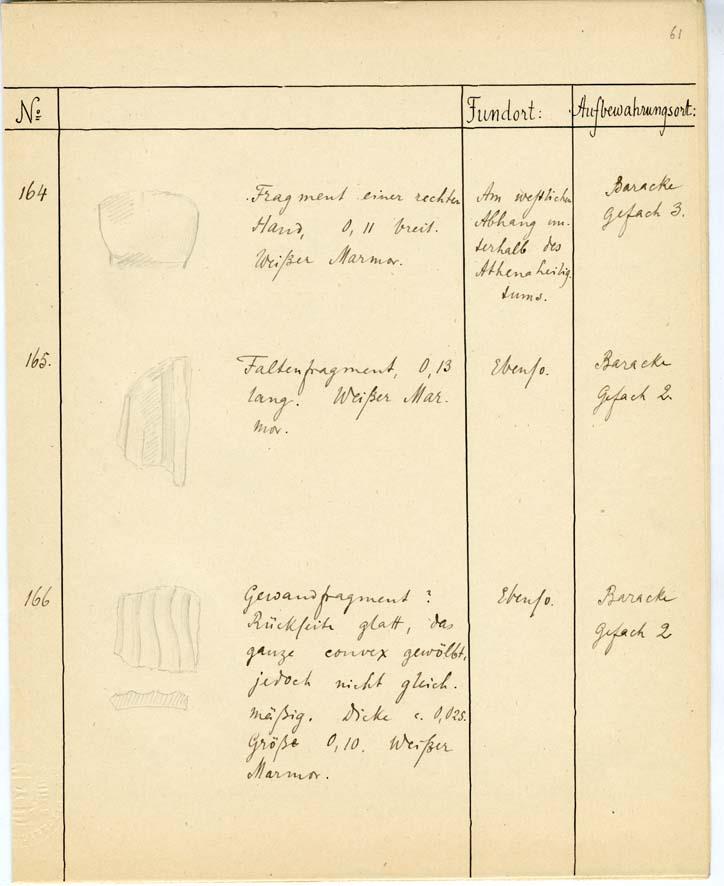 61
No
Fundort:
Aufbewahrungsort:
164
Fragment einer rechten
Hand, 0,11 breit.
Weißer Marmor.
Am westlichen
Abhang un-
terhalb des
Athenaheilig-
tums.
Baracke
Gefach 3.
165.
Faltenfragment, 0,13
lang. Weißer Mar-
mor.
Ebenso.
Baracke
Gefach 2.
166
Gewandfragment?
Rückseite glatt, das
ganze convex gewölbt,
jedoch nicht gleich-
mäßig. Dicke c. 0,025.
Größe 0,10. Weißer
Marmor.
Ebenso.
Baracke
Gefach 2